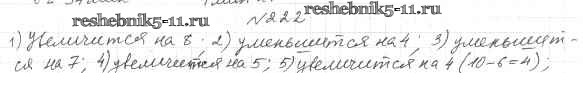 reshebnik5-11.ru
№222
1) Увеличится на 8; 2) уменьшится на 4; 3) уменьшит-
ся на 7; 4) увеличится на 5; 5) увеличится на 4 (10-6=4);
reshebnik5-11.ru